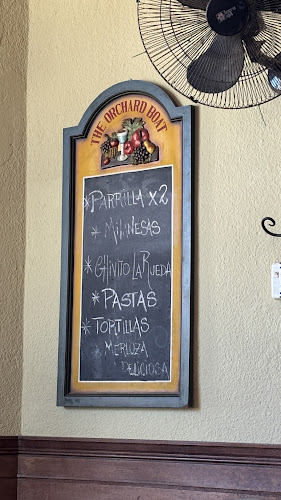 THE ORCHARD BOAT
* PARRILLA X2
* MILANESAS
* CHIVITO LA RUEDA
* PASTAS
* TORTILLAS
MERLUZA
DELICIOSA